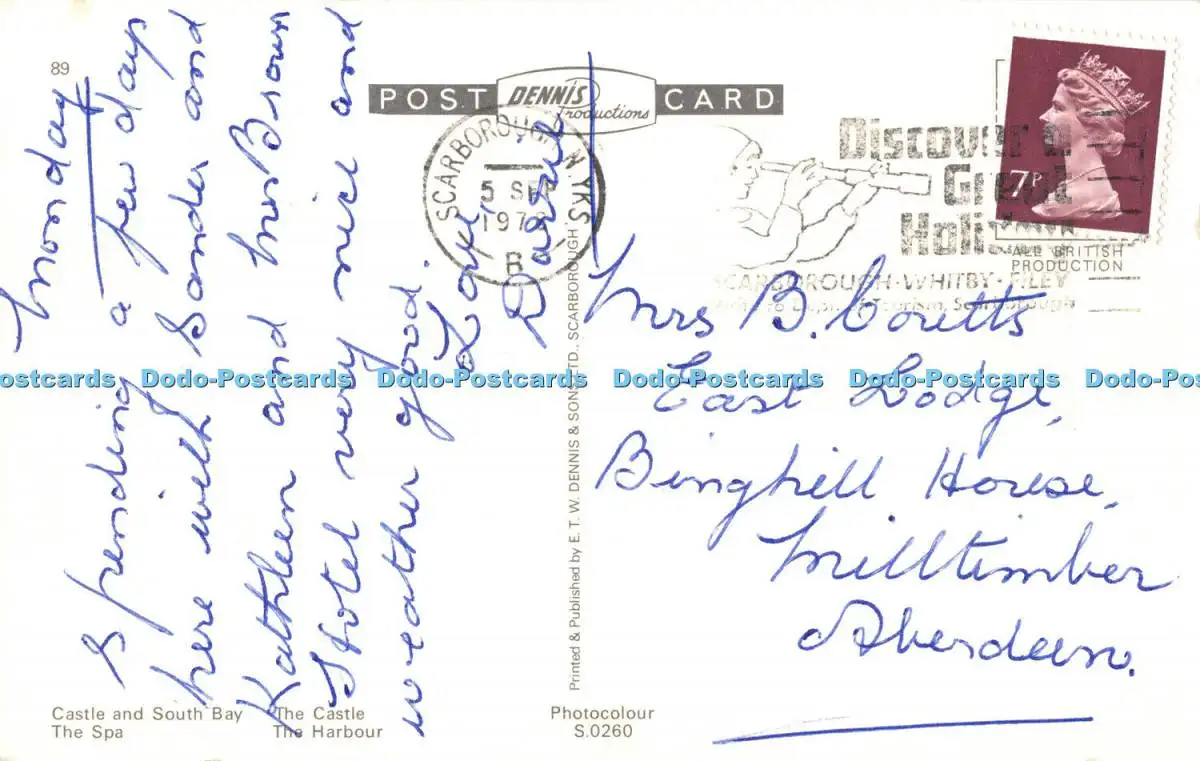 89
POST CARD
DENNIS
Productions
SCARBOROUGH N. YKS
5 SEP
197
B
Discover a
Great
Holiday
SCARBOROUGH-WHITBY-FILEY
Dept. of Tourism, Scarborough
7P
ALL BRITISH
PRODUCTION
Monday
Spending a few days
here with Sander and
Kathleen and Mrs Brown
Hotel very nice and
weather good.
Love,
Mrs B. Coretts
East Lodge,
Binghill House,
Milltimber
Aberdeen.
Printed & Published by E. T. W. DENNIS & SONS LTD., SCARBOROUGH
Castle and South Bay The Castle
The Spa The Harbour
Photocolour
S.0260
Dodo-Postcards Dodo-Postcards Dodo-Postcards Dodo-Postcards Dodo-Postcards